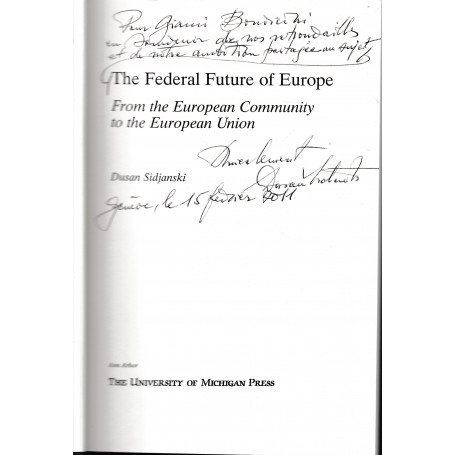 Pour Gianni Bonvicini
en souvenir de nos retrouvailles
et de notre ambition partagée au sujet
The Federal Future of Europe
From the European Community
to the European Union
Amicalement
Dusan Sidjanski
Dusan Sidjanski
Genève, le 15 février 2011
Ann Arbor
THE UNIVERSITY OF MICHIGAN PRESS